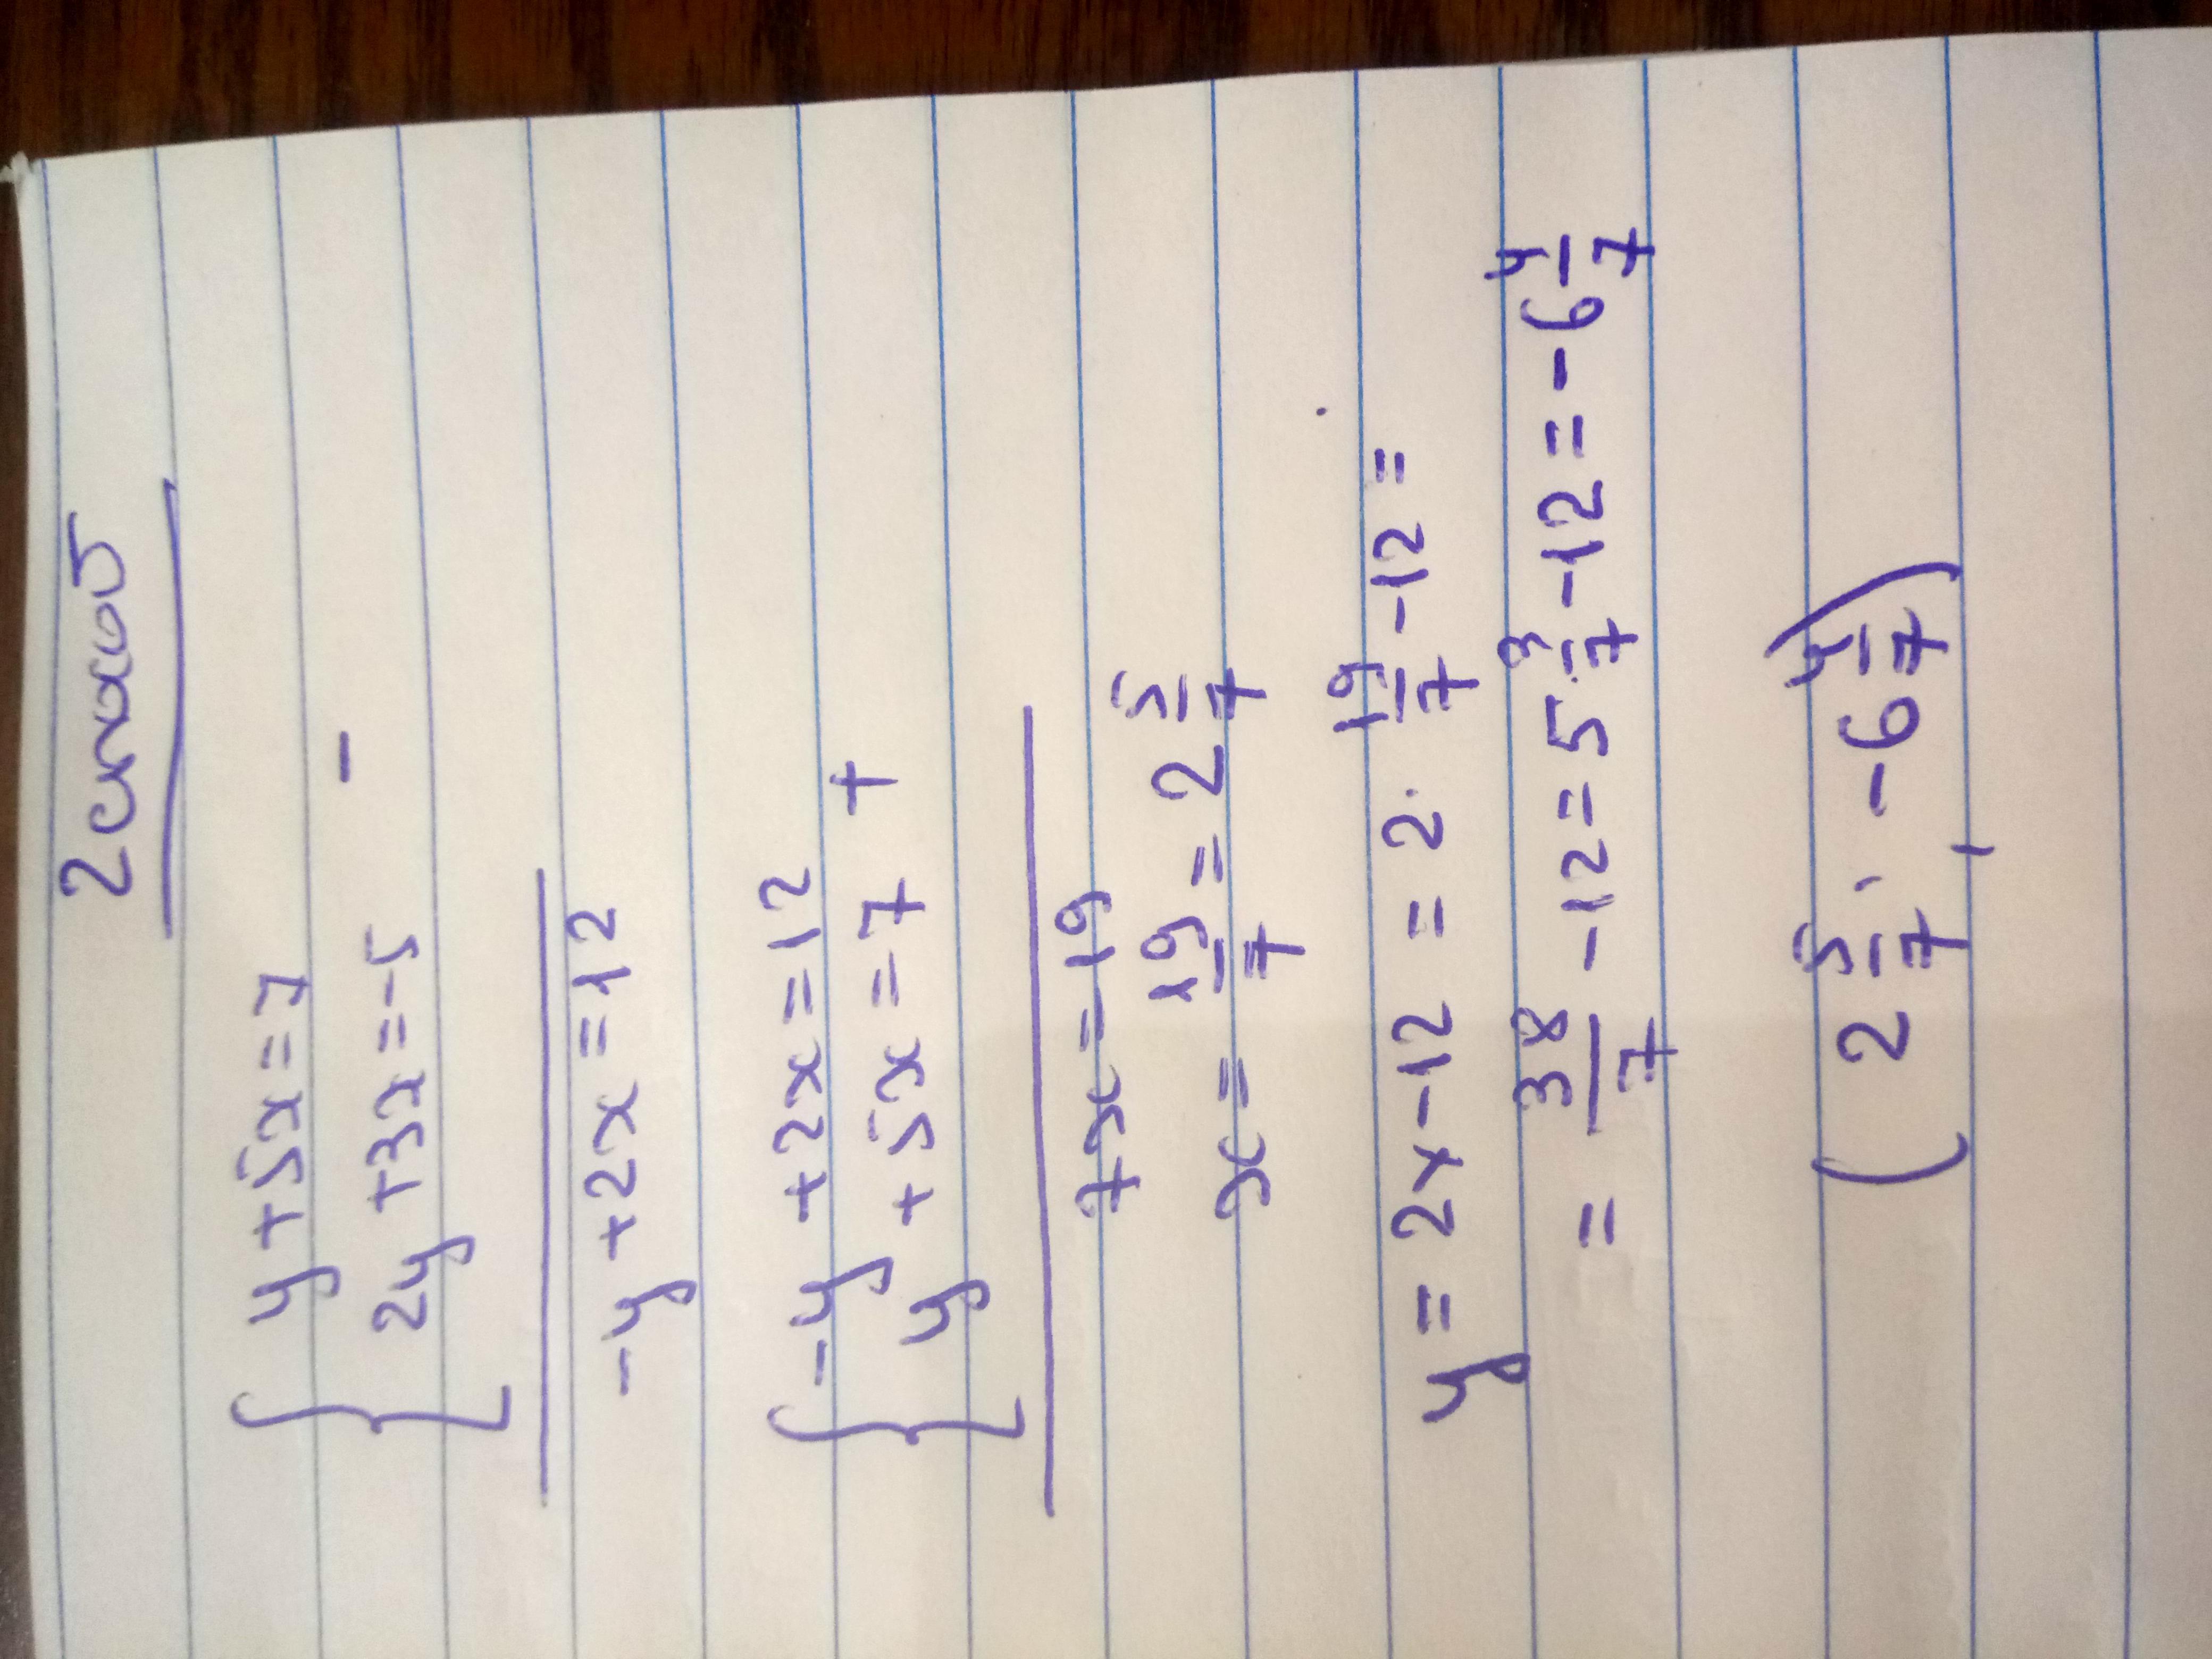 2 способ
{ y + 5x = 7
2y + 3x = -5 -
-y + 2x = 12
{ -y + 2x = 12
y + 5x = 7 +
7x = 19
x = 19/7 = 2 5/7
y = 2x - 12 = 2 · 19/7 - 12 =
= 38/7 - 12 = 5 3/7 - 12 = -6 4/7
(2 5/7; -6 4/7)